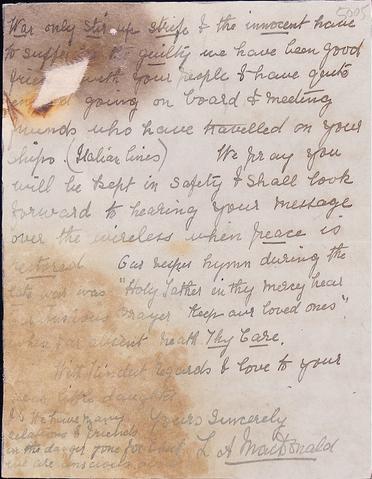 5005
War only stir up strife & the innocent have
to suffer the guilty we have been good
with your people & have quite
going on board & meeting
who have travelled on your
ships (Italian lines) We pray you
will be kept in safety & shall look
forward to hearing your message
over the wireless when peace is
restored Our vesper hymn during the
late war was "Holy Father in thy mercy hear
our anxious prayer Keep our loved ones"
when far absent neath Thy Care.
With kindest regards & love to your
Yours Sincerely
L A MacDonald
PS We have many
relations & friends
in the danger zone
we are conscious